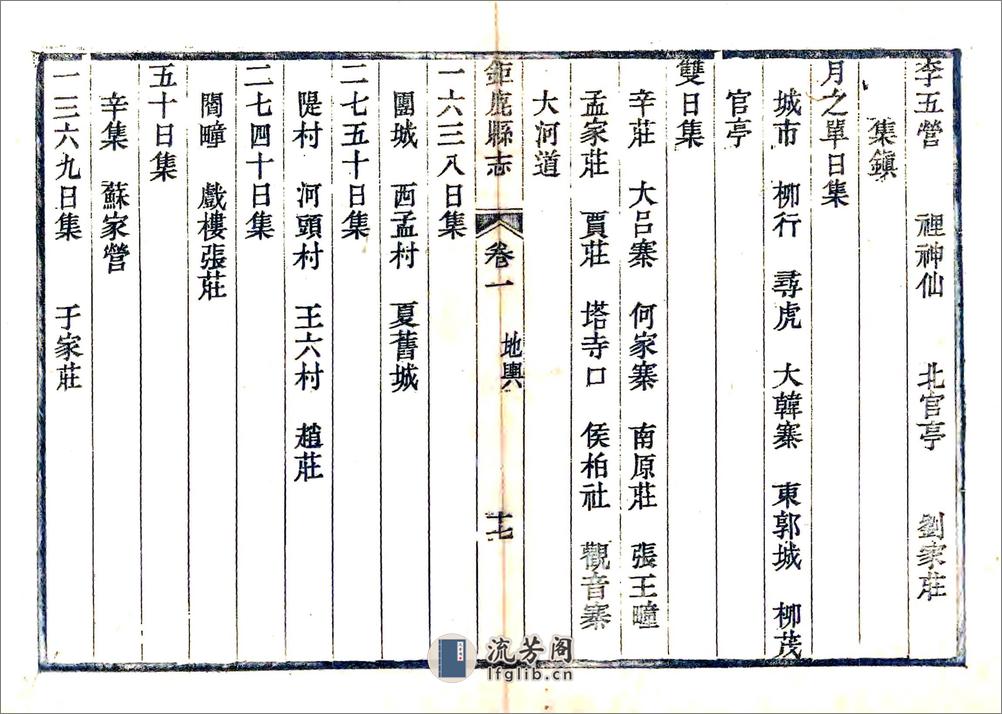 李五營　裡神仙　北官亭　劉家莊
集鎮
月之單日集
城市　柳行　尋虎　大韓寨　東郭城　柳茂
官亭
雙日集
辛莊　大呂寨　何家寨　南原莊　張王疃
孟家莊　賈莊　塔寺口　侯柏社　觀音寨
大河道
鉅鹿縣志　卷一　地輿　十七
一六三八日集
團城　西孟村　夏舊城
二七五十日集
隄村　河頭村　王六村　趙莊
二七四十日集
閻疃　戲樓張莊
五十日集
辛集　蘇家營
一三六九日集　于家莊
流芳阁
lfglib.cn